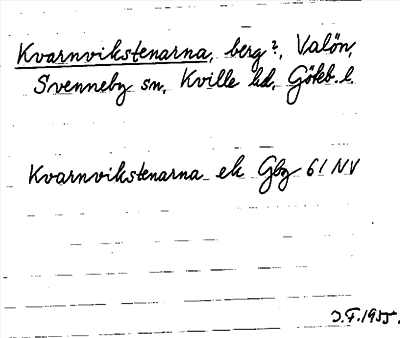 Kvarnvikstenarna, berg?, Valön,
Svenneby sn, Kville hd, Göteb. l.
Kvarnvikstenarna ek Gbg 61 NV
J.F. 1955.